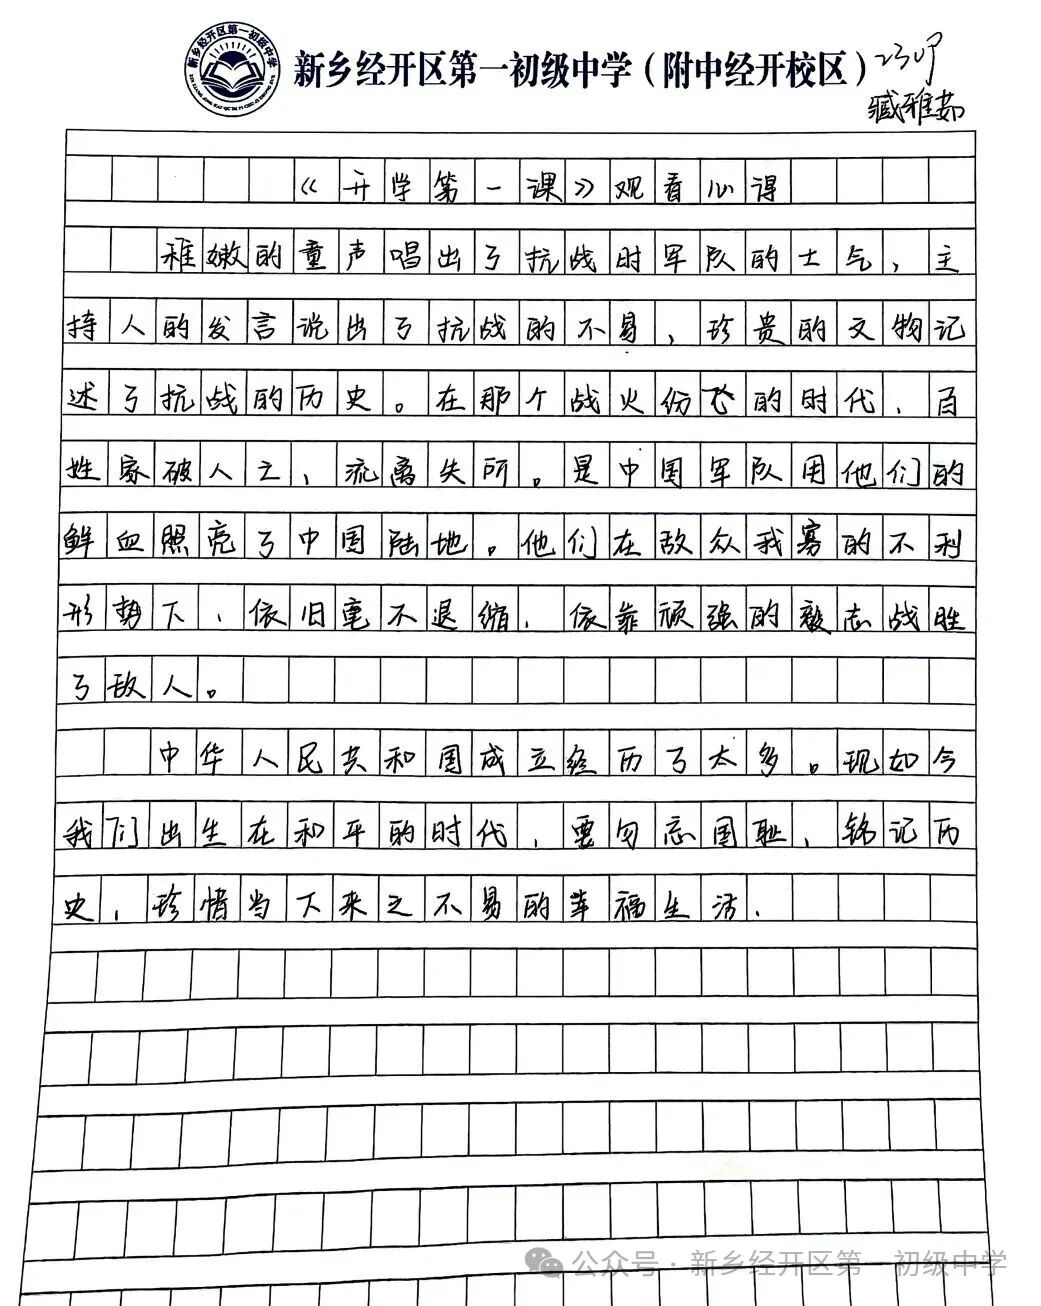 新乡经开区第一初级中学（附中经开校区）
臧雅茹
《开学第一课》观看心得
稚嫩的童声唱出了抗战时军队的士气，主
持人的发言说出了抗战的不易，珍贵的文物记
述了抗战的历史。在那个战火份飞的时代，百
姓家破人亡，流离失所。是中国军队用他们的
鲜血照亮了中国陆地。他们在敌众我寡的不利
形势下，依旧毫不退缩，依靠顽强的毅志战胜
了敌人。
中华人民共和国成立经历了太多。现如今
我们出生在和平的时代，要勿忘国耻，铭记历
史，珍惜当下来之不易的幸福生活.
公众号·新乡经开区第一初级中学